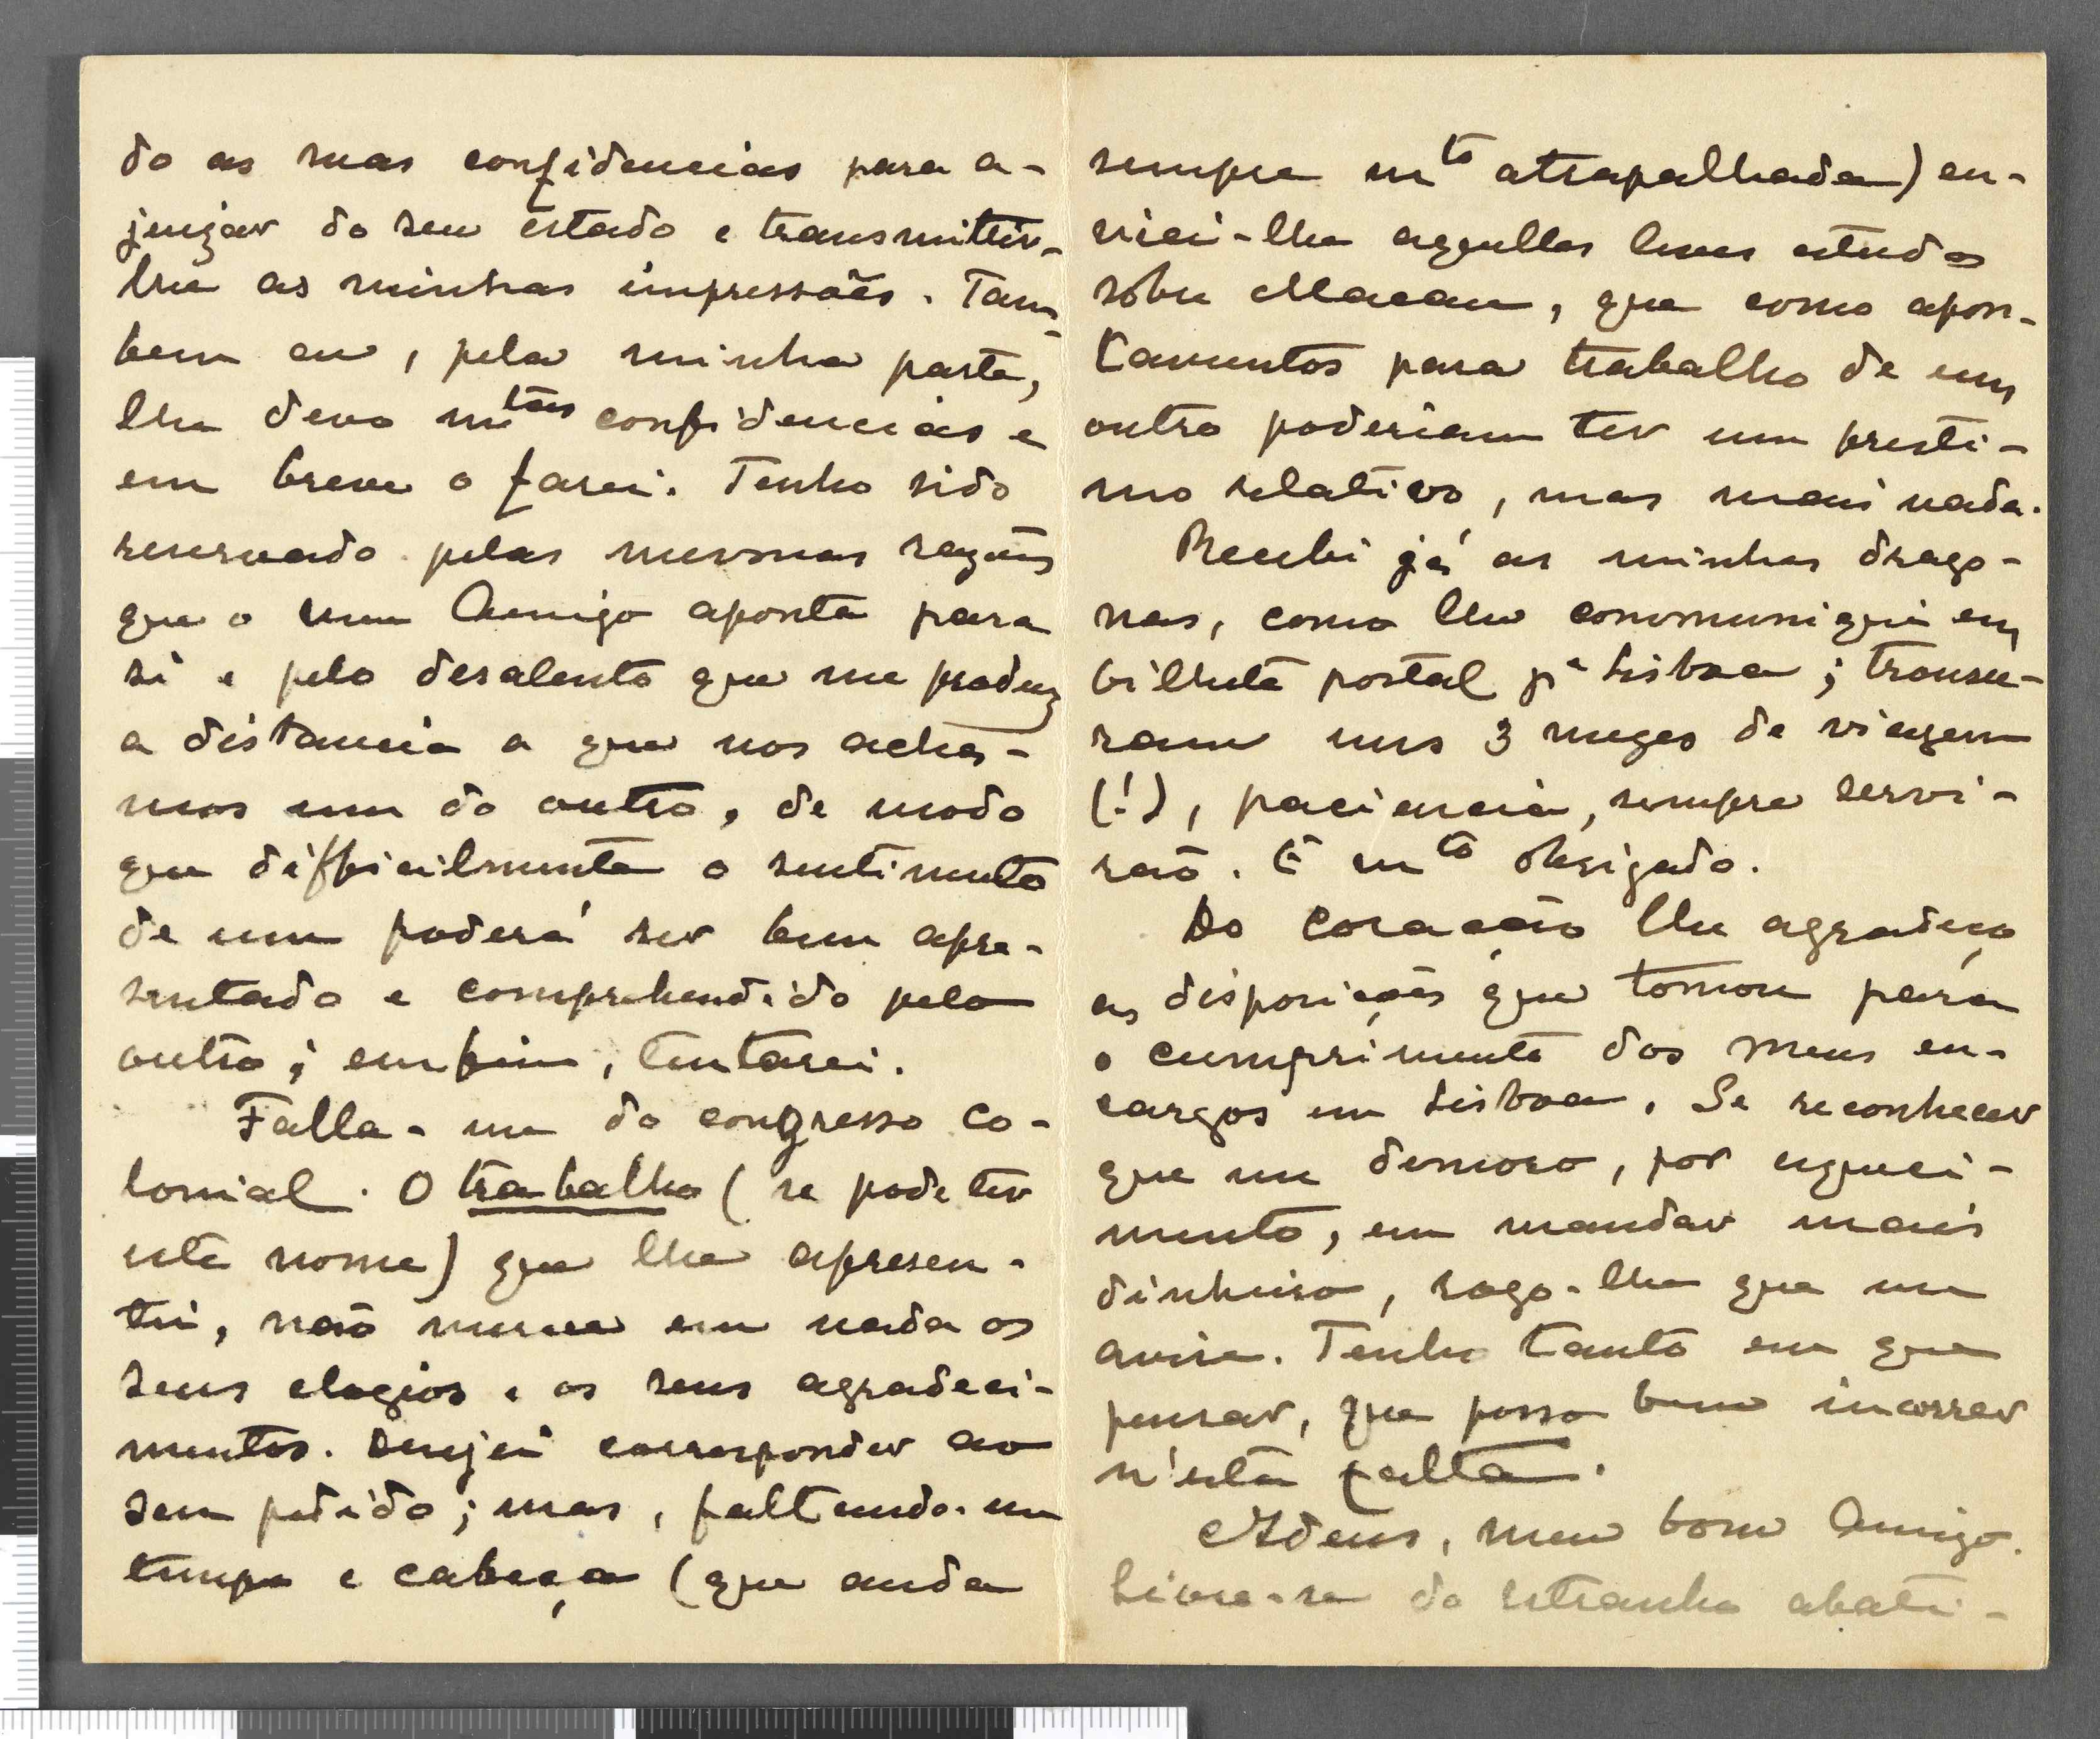 do as suas confidencias para a-
juizar do seu estado e transmittir-
lhe as minhas impressões. Tam-
bem eu, pela minha parte,
lhe devo mtas confidencias e
em breve o farei. Tenho sido
reservado pelas mesmas razões
que o meu Amigo aponta para
si e pelo desalento que me produz
a distancia a que nos acha-
mos um do outro, de modo
que difficilmente o sentimento
de um poderá ser bem apre-
sentado e comprehendido pelo
outro; emfim, tentarei.
Falla-me do congresso co-
lonial. O trabalho (se pode ter
este nome) que lhe apresen-
tei, não merece em nada os
seus elogios e os seus agradeci-
mentos. Desejei corresponder ao
seu pedido; mas, faltando-me
tempo e cabeça (que anda
sempre mto atrapalhada) en-
viei-lhe aquelles leves estudos
sobre Macau, que como apon-
tamentos para trabalho de um
outro poderiam ter um presti-
mo relativo, mas mais nada.
Recebi já as minhas drago-
nas, como lhe communiquei em
bilhete postal pa Lisboa; trouxe-
ram uns 3 mezes de viagem
(!), paciencia, sempre servi-
rão. E mto obrigado.
Do coração lhe agradeço
as disposições que tomou para
o cumprimento dos meus en-
cargos em Lisboa. Se reconhecer
que me demoro, por esqueci-
mento, em mandar mais
dinheiro, rogo-lhe que me
avise. Tenho tanto em que
pensar, que posso bem incorrer
n'esta falta.
Adeus, meu bom Amigo.
Livre-se do estranho abati-